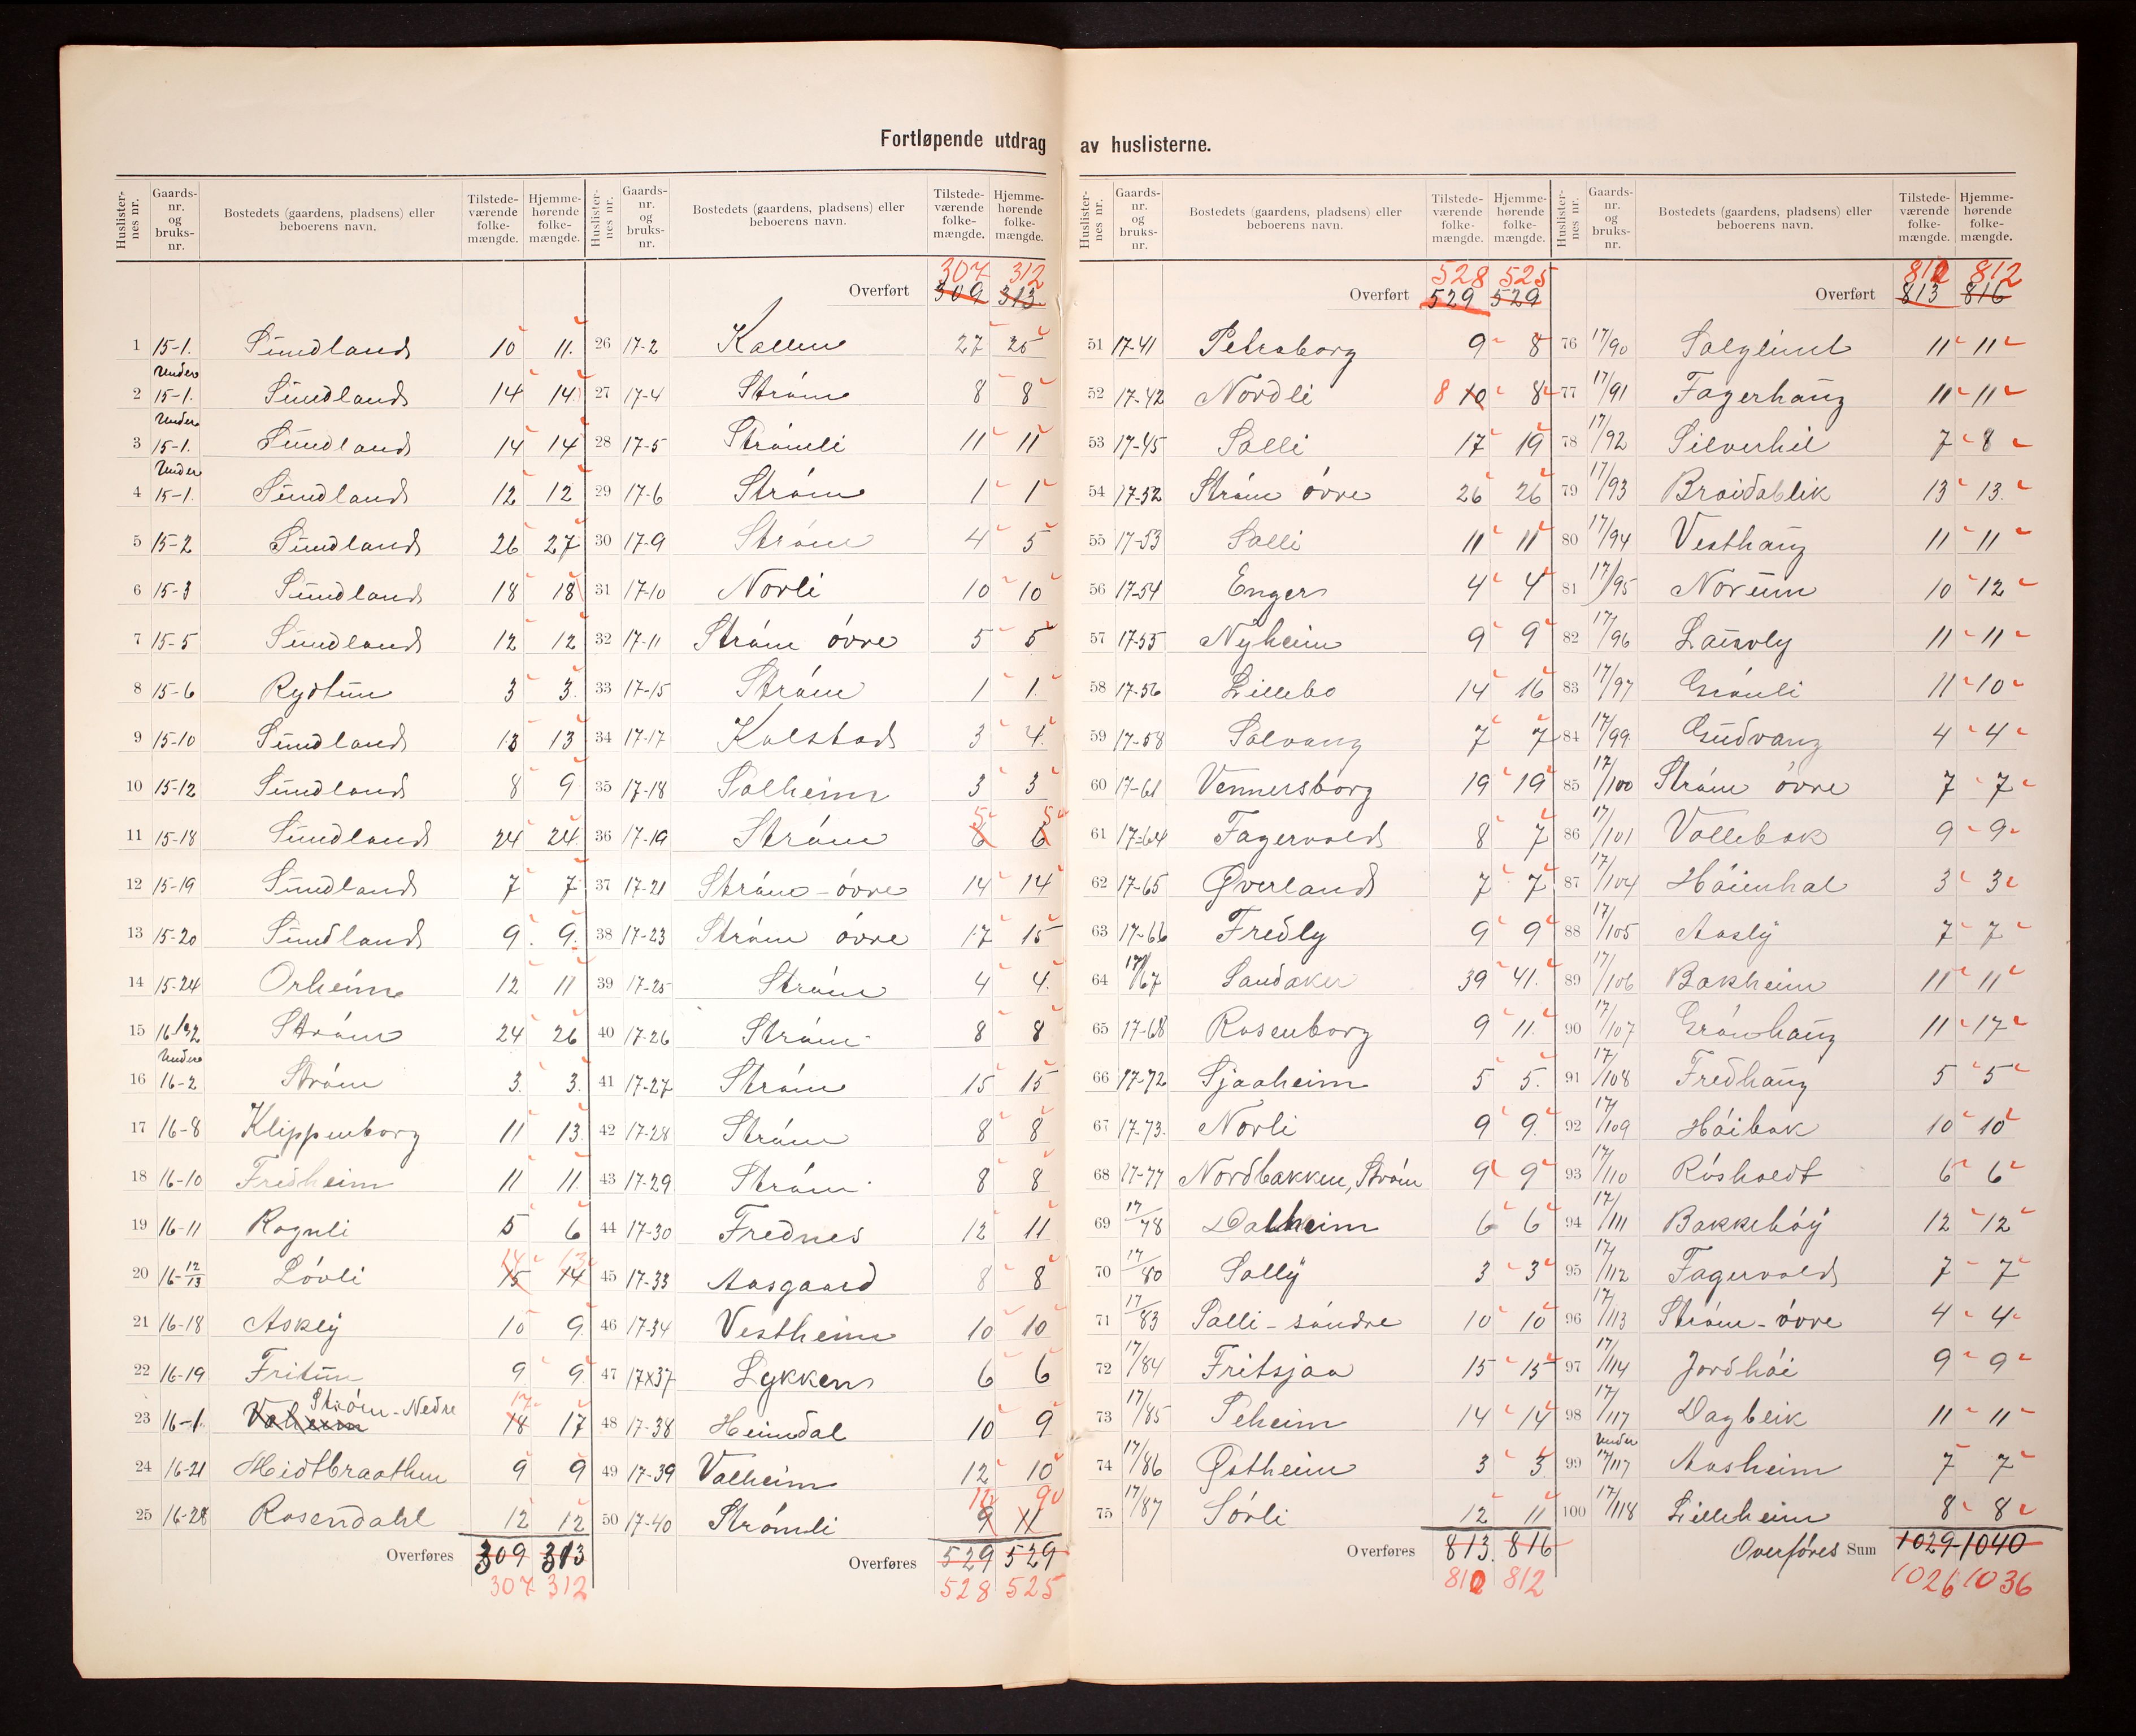 Fortløpende utdrag av huslisterne.
Huslister-nes nr. Gaards-nr. og bruks-nr. Bostedets (gaardens, pladsens) eller beboerens navn. Tilstede-værende folke-mængde. Hjemme-hørende folke-mængde.
1 15-1. Sundland 10 11.
2 Under 15-1. Sundland 14 14
3 Under 15-1. Sundland 14 14
4 Under 15-1. Sundland 12 12
5 15-2 Sundland 26 27
6 15-3 Sundland 18 18
7 15-5 Sundland 12 12
8 15-6 Rydtun 3 3.
9 15-10 Sundland 13 13
10 15-12 Sundland 8 9
11 15-18 Sundland 24 24.
12 15-19 Sundland 7 7
13 15-20 Sundland 9. 9.
14 15-24 Orheim 12 11
15 Strøm 24 26
16 Under 16-2 Strøm 3. 3.
17 16-8 Klippenborg 11 13.
18 16-10 Fredheim 11 11.
19 16-11 Rognli 5 6
20 16-12/13 Lóvli 15 14 14 13
21 16-18 Askly 10 9
22 16-19 Fritun 9 9
23 16-1. Valheim Stróm-Nedre 18 17 17
24 16-21 Midtbraathen 9 9
25 16-28 Rosendahl 12 12
Overføres 309 313
307 312
Huslister-nes nr. Gaards-nr. og bruks-nr. Bostedets (gaardens, pladsens) eller beboerens navn. Tilstede-værende folke-mængde. Hjemme-hørende folke-mængde.
307 312
Overført 309 313.
26 17-2 Kallum 27 25
27 17-4 Stróm 8 8
28 17-5 Strómli 11 11
29 17-6 Stróm 1 1
30 17-9 Stróm 4 5
31 17-10 Norli 10 10
32 17-11 Stróm óvre 5 5
33 17-15 Stróm 1 1.
34 17-17 Kolstad 3 4.
35 17-18 Solheim 3 3
36 17-19 Stróm 6 6 5 5
37 17-21 Stróm-óvre 14 14
38 17-23 Stróm óvre 17 15
39 17-25 Stróm 4 4.
40 17-26 Stróm 8 8
41 17-27 Stróm 15 15
42 17-28 Stróm 8 8
43 17-29 Stróm 8 8
44 17-30 Frednes 12 11
45 17-33 Aasgaard 8 8
46 17-34 Vestheim 10 10
47 17x37 Lykken 6 6
48 17-38 Heimdal 10 9
49 17-39 Valheim 12 10
50 17-40 Strómli 9 11 10 9
Overføres 529 529
528 525
Huslister-nes nr. Gaards-nr. og bruks-nr. Bostedets (gaardens, pladsens) eller beboerens navn. Tilstede-værende folke-mængde. Hjemme-hørende folke-mængde.
528 525
Overført 529 529
51 17-41 Petersborg 9 8
52 17-42 Nordli 8 10 8
53 17-45 Solli 17 19
54 17-52 Stróm óvre 26 26
55 17-53 Solli 11 11
56 17-54 Enger 4 4
57 17-55 Nyheim 9 9
58 17-56 Lillebo 14 16
59 17-58 Solvang 7 7
60 17-61 Vennersborg 19 19
61 17-64 Fagervold 8 7
62 17-65 Øverland 7 7
63 17-66 Fredly 9 9
64 17/67 Sandaker 39 41.
65 17-68 Rosenborg 9 11.
66 17-72 Sjaaheim 5 5.
67 17-73. Norli 9 9.
68 17-77 Nordbakken, Stróm 9 9
69 17/78 Dalheim 6 6
70 17/80 Solly 3 3
71 17/83 Solli-sóndre 10 10
72 17/84 Fritsjaa 15 15
73 17/85 Seheim 14 14
74 17/86 Østheim 3 3
75 17/87 Sórli 12 11
Overføres 813. 816
810 812
Huslister-nes nr. Gaards-nr. og bruks-nr. Bostedets (gaardens, pladsens) eller beboerens navn. Tilstede-værende folke-mængde. Hjemme-hørende folke-mængde.
810 812
Overført 813 816
76 17/90 Solglimt 11 11
77 17/91 Fagerhaug 11 11
78 17/92 Silverhil 7 8
79 17/93 Breidablik 13 13.
80 17/94 Vesthaug 11 11
81 17/95 Norum 10 12
82 17/96 11 11
83 17/97 Grónli 11 10
84 17/99 Gudvang 4 4
85 17/100 Stróm óvre 7 7
86 17/101 Vollebak 9 9
87 17/104 3 3
88 17/105 Aasly 7 7
89 17/106 Bakheim 11 11
90 17/107 Grónhaug 11 17
91 17/108 Fredhaug 5 5
92 17/109 Hóibak 10 10
93 17/110 Rósholdt 6 6
94 17/111 Bakkehóy 12 12
95 17/112 Fagervold 7 7
96 17/113 Stróm-óvre 4 4
97 17/114 Jordhói 9 9
98 17/117 Dagbeik 11 11
99 Under 17/117 Aasheim 7 7
100 17/118 Lilleheim 8 8
Overfóres Sum 1029 1040
1026 1036